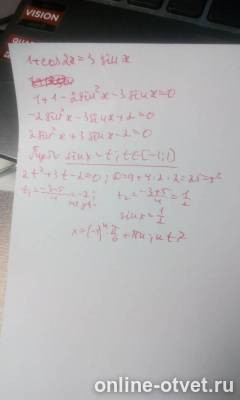 VISION
1+cos2x=3 sin x
1+1-2sin²x-3sinx=0
-2sin²x-3sinx+2=0
2sin²x+3sinx-2=0
Пусть sinx=t; t∈[-1;1]
2t²+3t-2=0; D=9+4·2·2=25=5²
t₁=(-3-5)/4=-2; t₂=(-3+5)/4=1/2
sinx=1/2
x=(-1)ⁿ·π/6+πn; n∈Z
online-otvet.ru